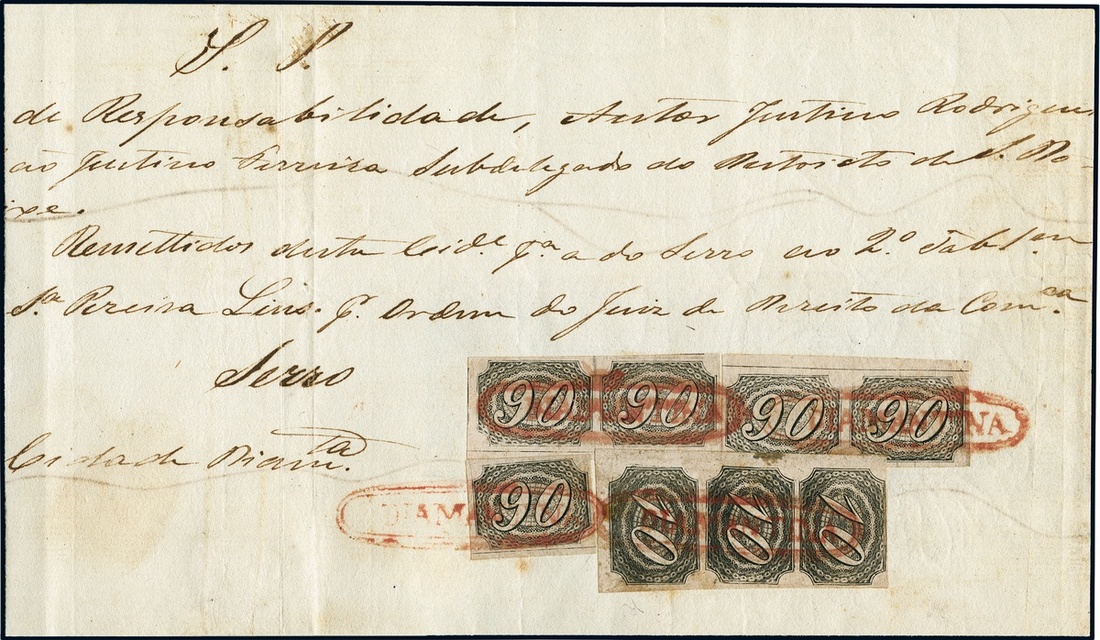 S. P.
de Responsabilidade, Autor Justino Rodrigues
ao Justino Ferreira Subdelegado do Destricto de S. Do-
Remettidos desta Cid.e p.a a do Serro ao 2.o Tab
S.a Pereira Lins. p. Ordem do Juiz de Direito da Com.ca
Serro
Cidade Diam.ta
90 90 90 90
DIAMANTINA
90 10 10 10
DIAMANTINA